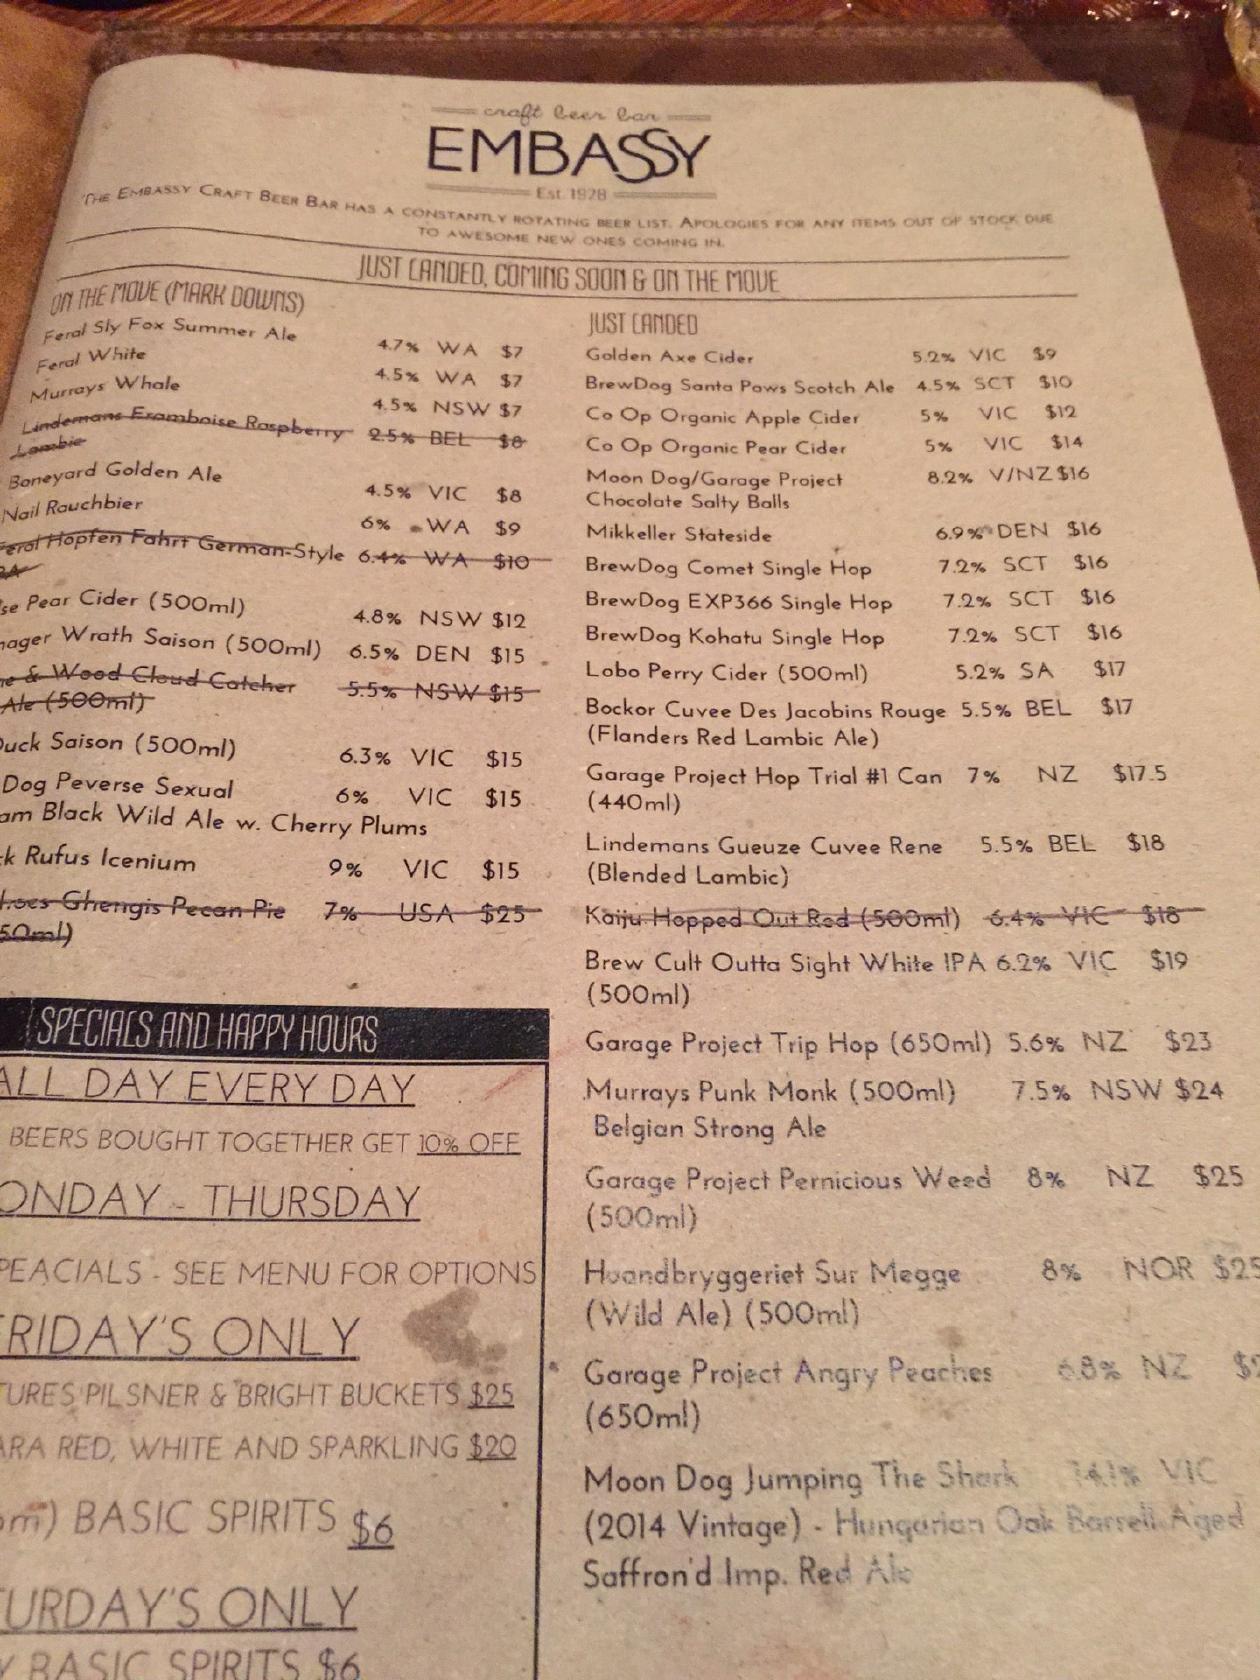 craft beer bar
EMBASSY
Est. 1928
THE EMBASSY CRAFT BEER BAR HAS A CONSTANTLY ROTATING BEER LIST. APOLOGIES FOR ANY ITEMS OUT OF STOCK DUE
TO AWESOME NEW ONES COMING IN.
JUST LANDED, COMING SOON & ON THE MOVE
ON THE MOVE (MARK DOWNS)
Feral Sly Fox Summer Ale 4.7% WA $7
Feral White 4.5% WA $7
Murrays Whale 4.5% NSW $7
Lindemans Framboise Raspberry 2.5% BEL $8
Lambic
Boneyard Golden Ale 4.5% VIC $8
Nail Rauchbier 6% WA $9
Feral Hopfen Fahrt German-Style 6.4% WA $10
Pear Cider (500ml) 4.8% NSW $12
Wrath Saison (500ml) 6.5% DEN $15
& Wood Cloud Catcher 5.5% NSW $15
Ale (500ml)
Duck Saison (500ml) 6.3% VIC $15
Dog Peverse Sexual 6% VIC $15
Black Wild Ale w. Cherry Plums
Rufus Icenium 9% VIC $15
Ghengis Pecan Pie 7% USA $25
JUST LANDED
Golden Axe Cider 5.2% VIC $9
BrewDog Santa Paws Scotch Ale 4.5% SCT $10
Co Op Organic Apple Cider 5% VIC $12
Co Op Organic Pear Cider 5% VIC $14
Moon Dog/Garage Project 8.2% V/NZ $16
Chocolate Salty Balls
Mikkeller Stateside 6.9% DEN $16
BrewDog Comet Single Hop 7.2% SCT $16
BrewDog EXP366 Single Hop 7.2% SCT $16
BrewDog Kohatu Single Hop 7.2% SCT $16
Lobo Perry Cider (500ml) 5.2% SA $17
Bockor Cuvee Des Jacobins Rouge 5.5% BEL $17
(Flanders Red Lambic Ale)
Garage Project Hop Trial #1 Can 7% NZ $17.5
(440ml)
Lindemans Gueuze Cuvee Rene 5.5% BEL $18
(Blended Lambic)
Kaiju Hopped Out Red (500ml) 6.4% VIC $18
Brew Cult Outta Sight White IPA 6.2% VIC $19
(500ml)
Garage Project Trip Hop (650ml) 5.6% NZ $23
Murrays Punk Monk (500ml) 7.5% NSW $24
Belgian Strong Ale
Garage Project Pernicious Weed 8% NZ $25
(500ml)
Haandbryggeriet Sur Megge 8% NOR $25
(Wild Ale) (500ml)
Garage Project Angry Peaches 6.8% NZ
(650ml)
Moon Dog Jumping The Shark 14.1% VIC
(2014 Vintage) - Hungarian Oak Barrell Aged
Saffron'd Imp. Red Ale
SPECIALS AND HAPPY HOURS
ALL DAY EVERY DAY
BEERS BOUGHT TOGETHER GET 10% OFF
ONDAY - THURSDAY
PEACIALS - SEE MENU FOR OPTIONS
FRIDAY'S ONLY
TURES PILSNER & BRIGHT BUCKETS $25
ARA RED, WHITE AND SPARKLING $20
pm) BASIC SPIRITS $6
TURDAY'S ONLY
BASIC SPIRITS $6